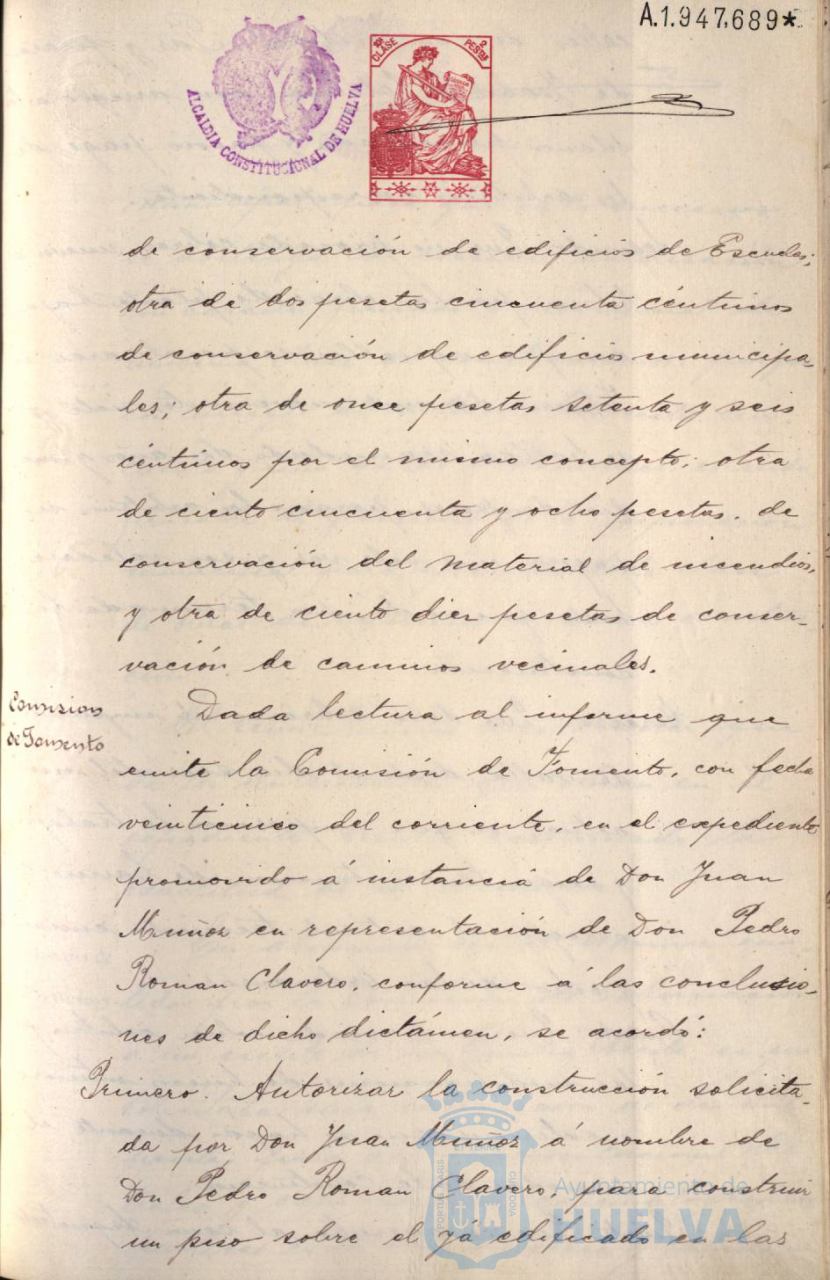 A.1.947.689*
ALCALDIA CONSTITUCIONAL DE HUELVA
10ª CLASE 2 PESETAS
de conservación de edificios de Escuelas;
otra de dos pesetas cincuenta céntimos
de conservación de edificios municipa-
les; otra de once pesetas setenta y seis
céntimos por el mismo concepto; otra
de ciento cincuenta y ocho pesetas. de
conservación del material de incendios,
y otra de ciento diez pesetas de conser-
vación de caminos vecinales.
Comision
de Fomento
Dada lectura al informe que
emite la Comisión de Fomento, con fecha
veinticinco del corriente, en el expediente
promovido á instancia de Don Juan
Muñoz en representación de Don Pedro
Roman Clavero, conforme á las conclusio-
nes de dicho dictámen, se acordó:
Primero. Autorizar la construcción solicita-
da por Don Juan Muñoz á nombre de
Don Pedro Roman Clavero, para construir
un piso sobre el yá edificado en las
Ayuntamiento de
HUELVA